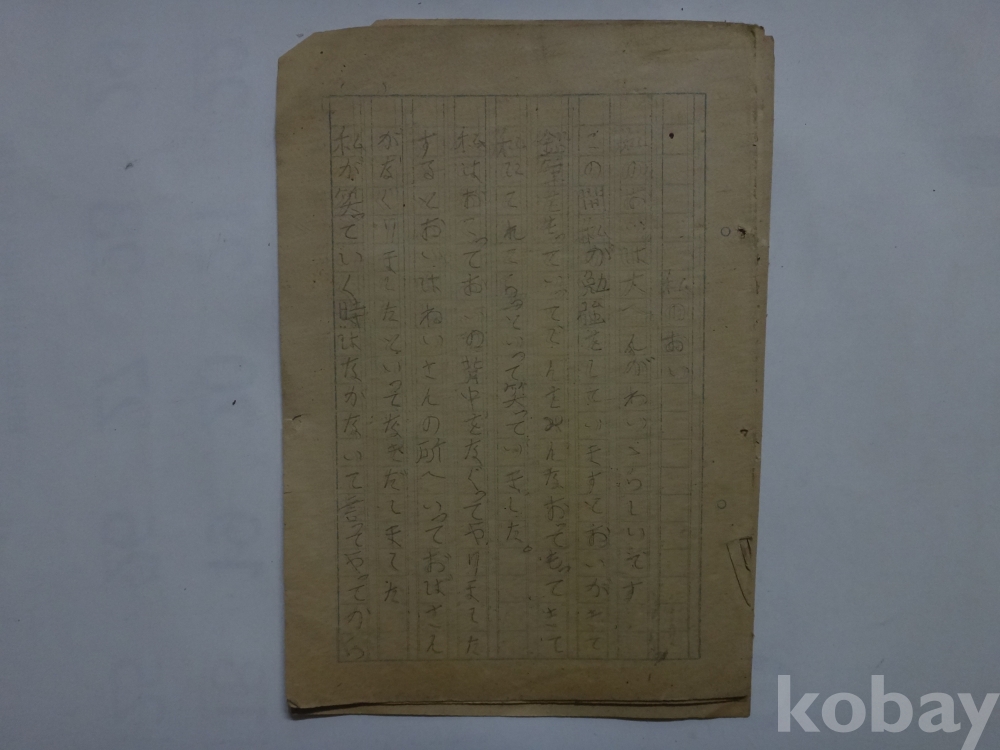 私のおい
私のおいは大へんかわいらしいです
この間私が勉強をしていますとおいがきて
鉛筆をもっていってしんをみんなおってもってきて
といって笑っていました。
私はおこっておいの背中をなぐってやりました
するとおいはねいさんの所へいっておばさん
がなぐりましたといってなきだしました
私が笑っていく時はながないて言ってやってから
kobay